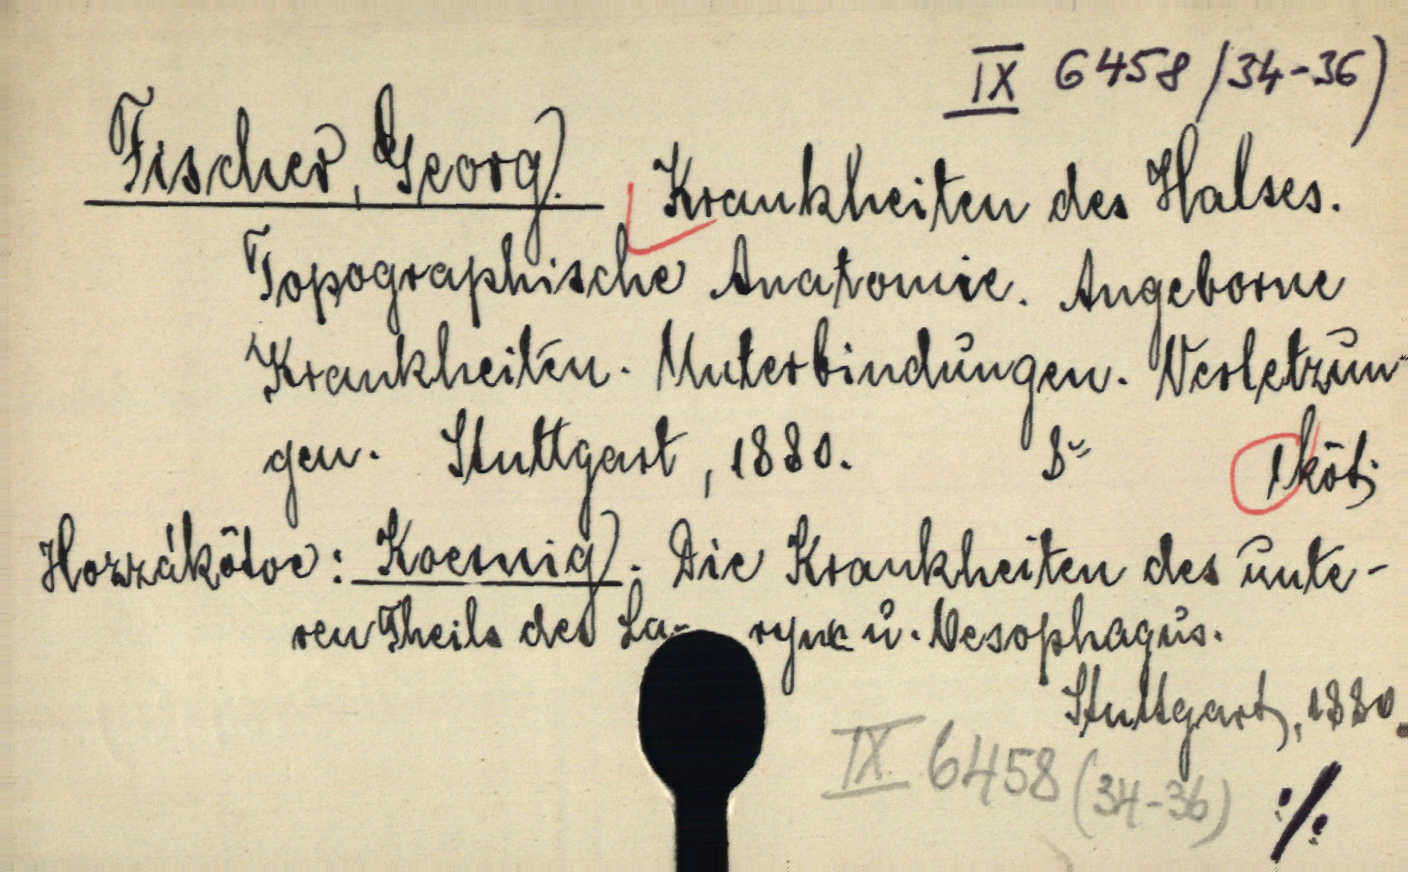 IX 6458 /34-36)
Fischer, Georg. Krankheiten des Halses.
Topographische Anatomie. Angeborne
Krankheiten. Unterbindungen. Verletzun-
gen. Stuttgart, 1880. 8° 1 köt.
Hozzákötve: Koenig. Die Krankheiten des unte-
ren Theils des La- rynx u. Oesophagus.
Stuttgart, 1880.
IX 6458 (34-36) ./.